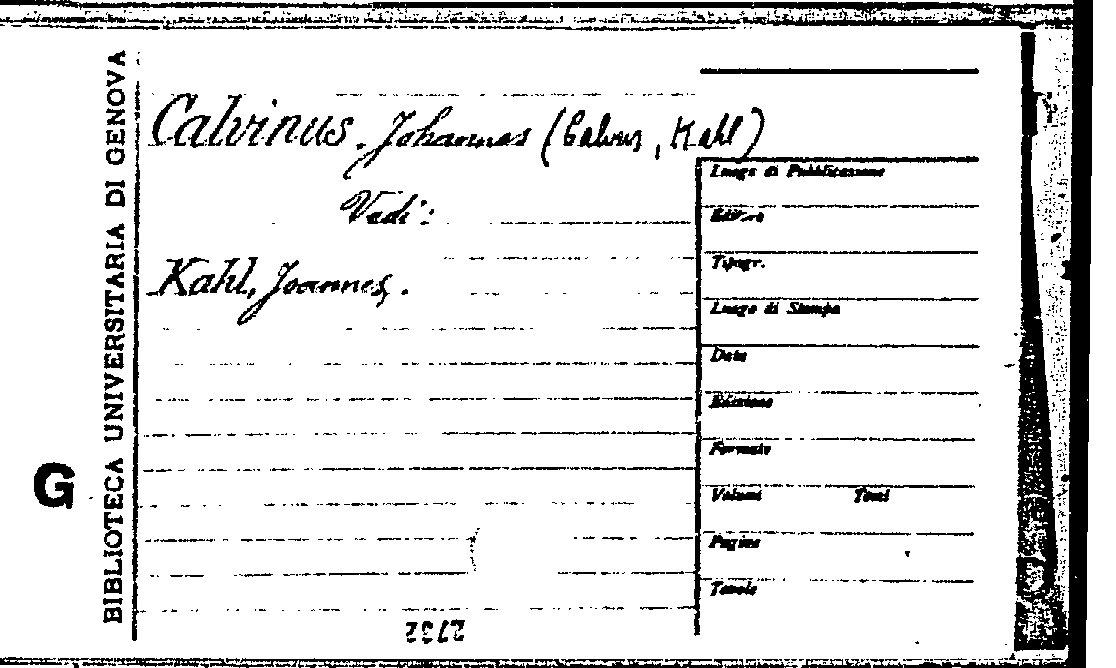 Calvinus, Johannes (Calvus, Kahl)
Vedi:
Kahl, Joannes.
BIBLIOTECA UNIVERSITARIA DI GENOVA
G
Luogo di Pubblicazione
Editore
Tipogr.
Luogo di Stampa
Data
Edizione
Formato
Volumi Tomi
Pagine
Tavole
2732